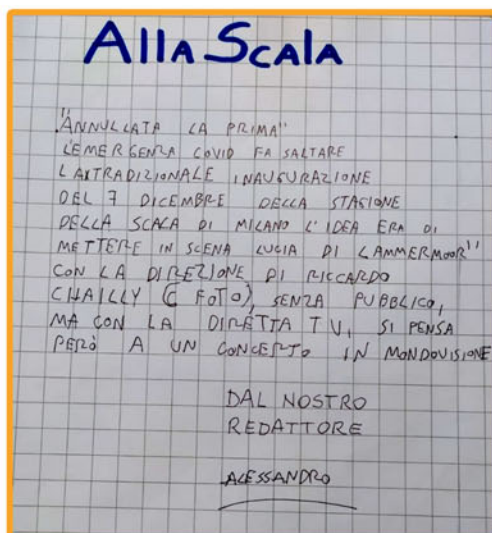 ALLA SCALA
"ANNULLATA LA PRIMA"
L'EMERGENZA COVID FA SALTARE
LAXTRADIZIONALE INAUGURAZIONE
DEL 7 DICEMBRE DELLA STAGIONE
DELLA SCALA DI MILANO L'IDEA ERA DI
METTERE IN SCENA LUCIA DI LAMMERMOOR"
CON LA DIREZIONE DI RICCARDO
CHAILLY (E FOTO), SENZA PUBBLICO,
MA CON LA DIRETTA TV, SI PENSA
PERÒ A UN CONCERTO IN MONDOVISIONE
DAL NOSTRO
REDATTORE
ALESSANDRO